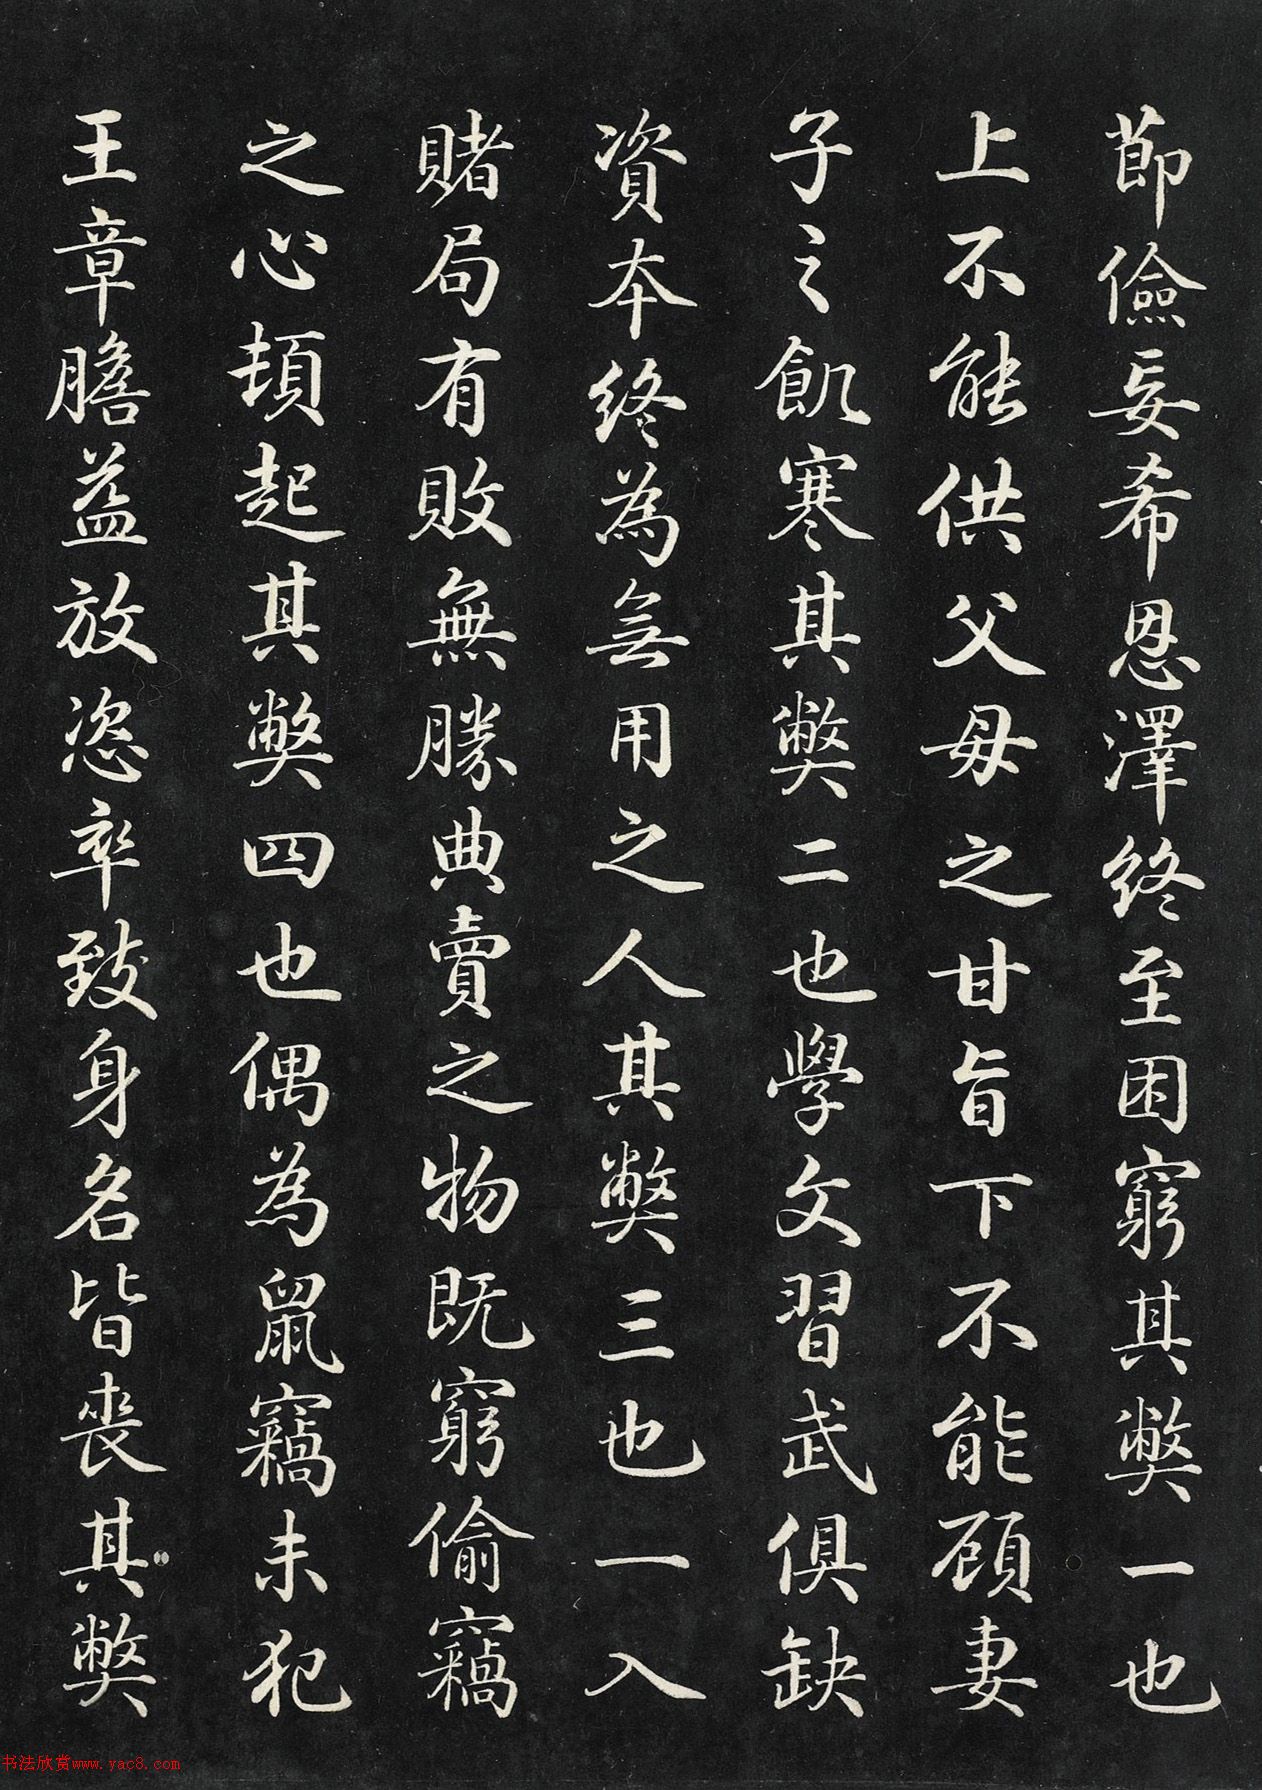 節儉妄希恩澤終至困窮其獘一也
上不能供父母之甘旨下不能顧妻
子之飢寒其獘二也學文習武俱缺
資本終為無用之人其獘三也一入
賭局有敗無勝典賣之物既窮偷竊
之心頓起其獘四也偶為鼠竊未犯
王章膽益放恣率致身名皆喪其獘
书法欣赏www.yac8.com